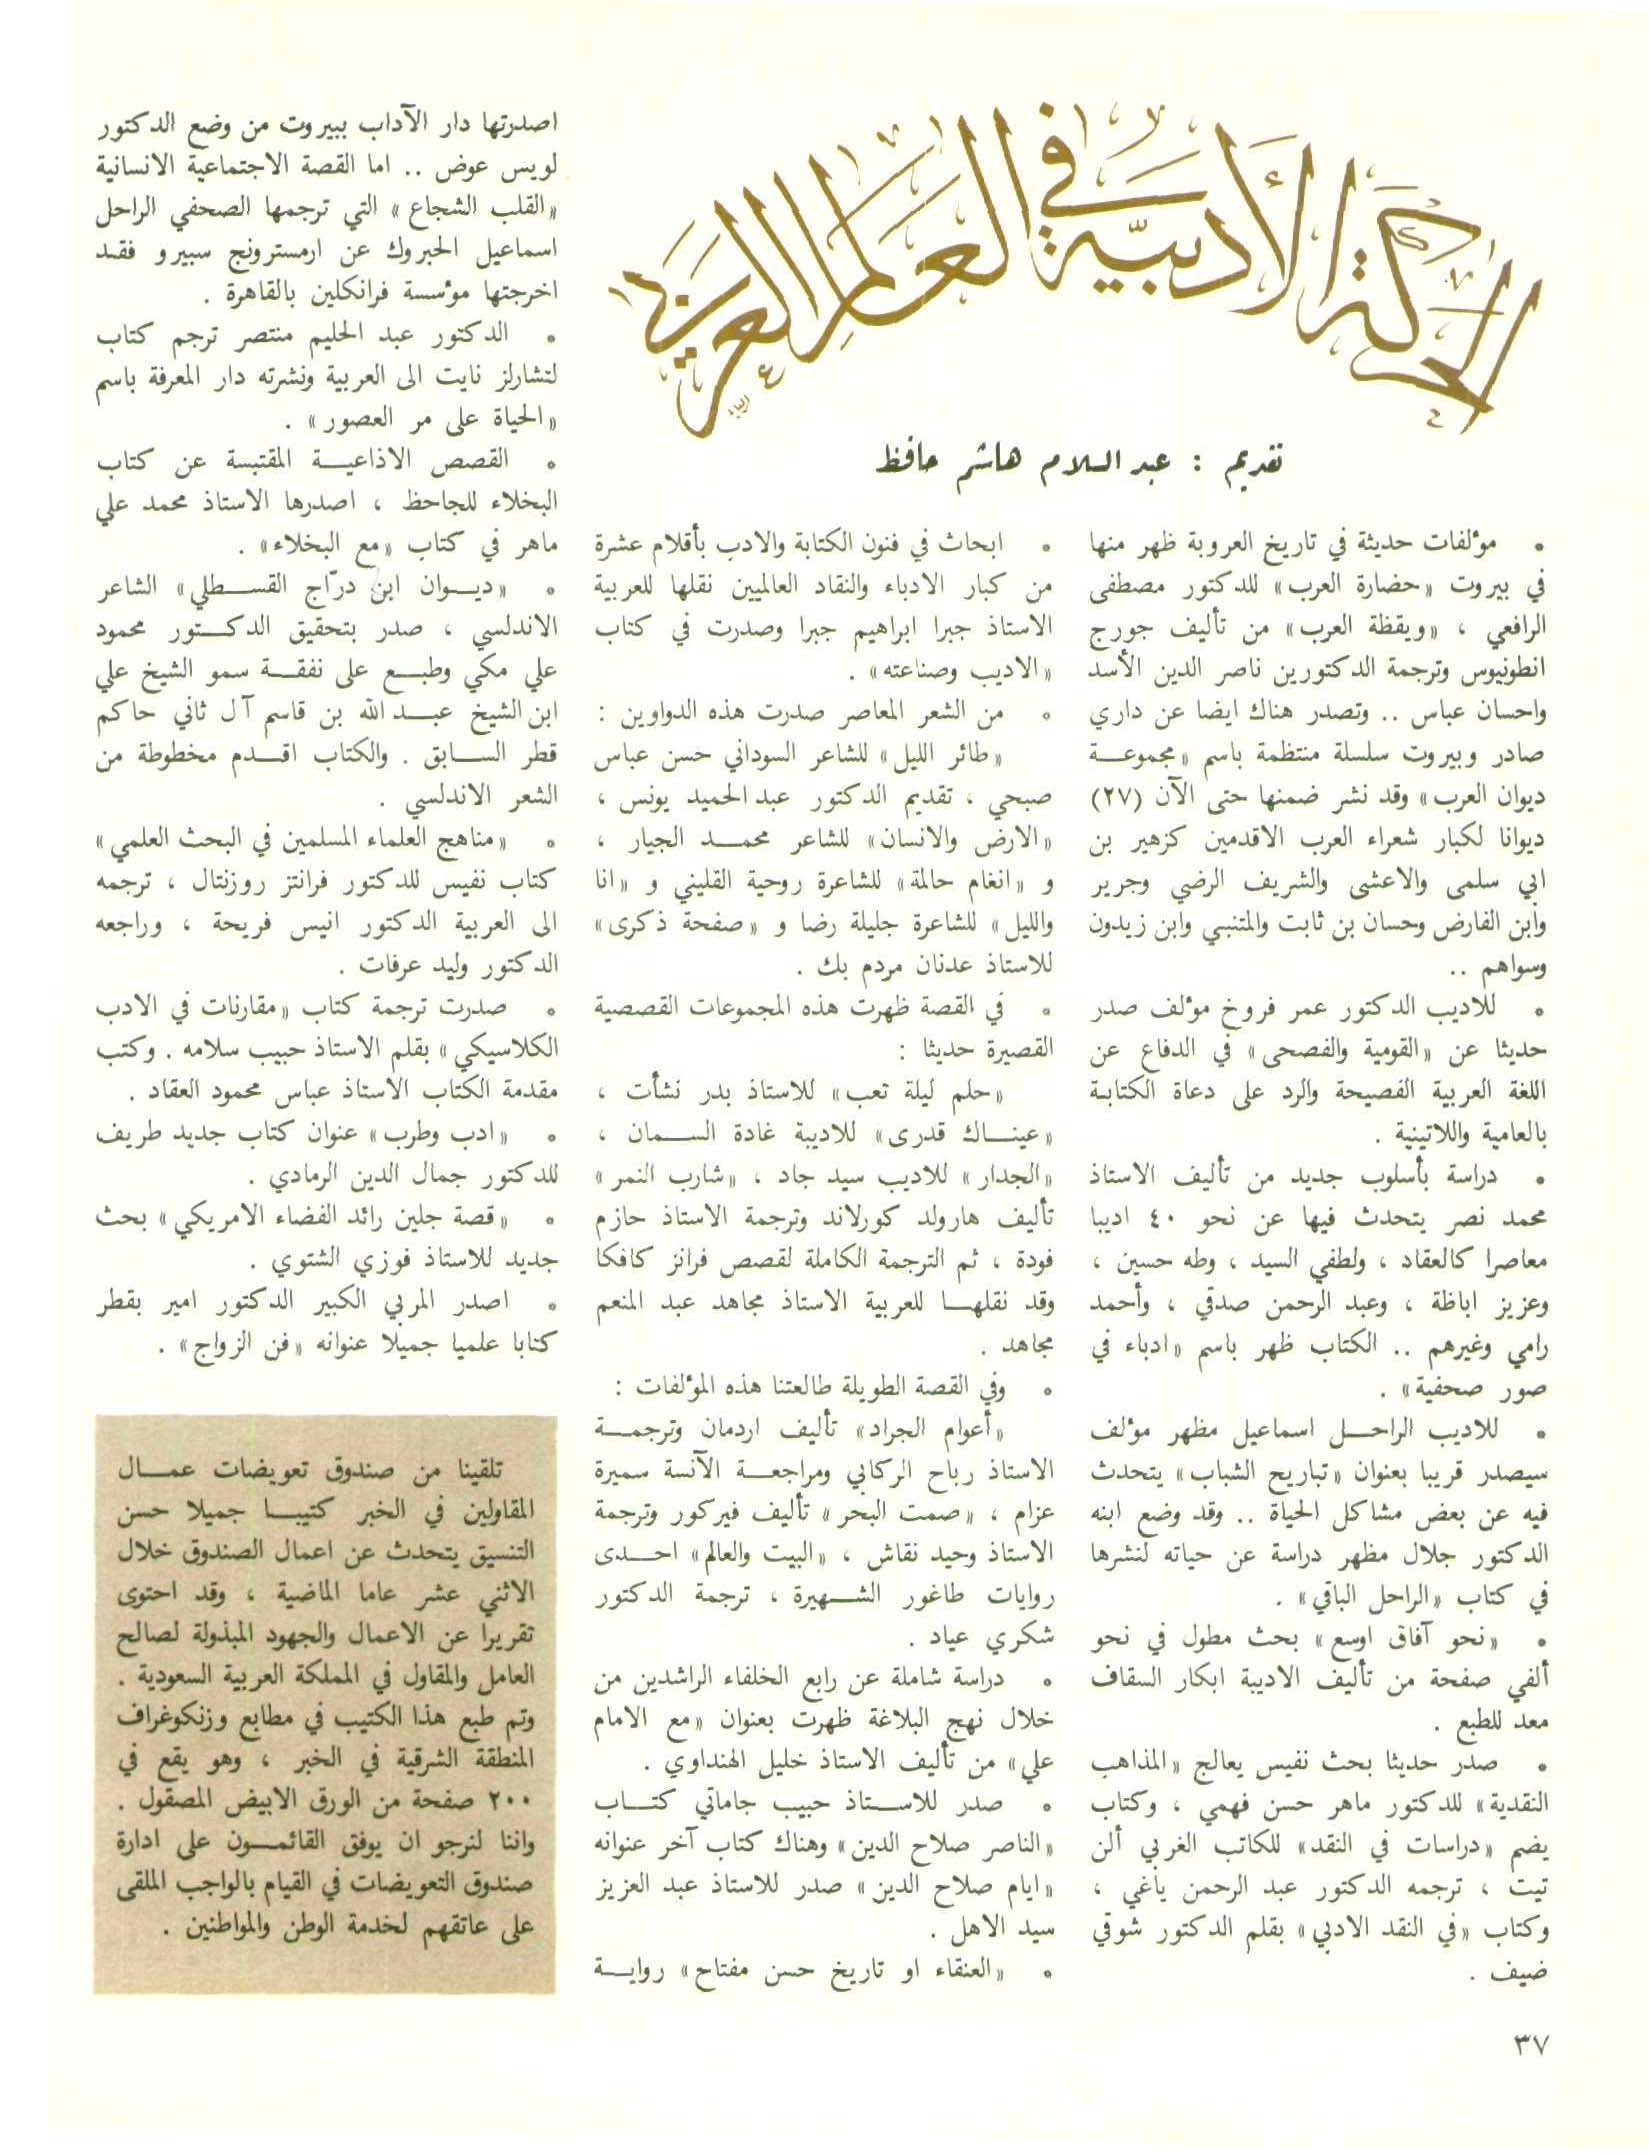 الحركة الأدبية في العالم العربي
تقديم : عبد السلام هاشم حافظ
• مؤلفات حديثة في تاريخ العروبة ظهر منها
في بيروت «حضارة العرب» للدكتور مصطفى
الرافعي ، «ويقظة العرب» من تأليف جورج
انطونيوس وترجمة الدكتورين ناصر الدين الأسد
واحسان عباس .. وتصدر هناك ايضا عن داري
صادر وبيروت سلسلة منتظمة باسم «مجموعة
ديوان العرب» وقد نشر ضمنها حتى الآن (٢٧)
ديوانا لكبار شعراء العرب الاقدمين كزهير بن
ابي سلمى والاعشى والشريف الرضي وجرير
وابن الفارض وحسان بن ثابت والمتنبي وابن زيدون
وسواهم ..
• للاديب الدكتور عمر فروخ مؤلف صدر
حديثا عن «القومية والفصحى» في الدفاع عن
اللغة العربية الفصيحة والرد على دعاة الكتابة
بالعامية واللاتينية .
• دراسة بأسلوب جديد من تأليف الاستاذ
محمد نصر يتحدث فيها عن نحو ٤٠ اديبا
معاصرا كالعقاد ، ولطفي السيد ، وطه حسين ،
وعزيز اباظة ، وعبد الرحمن صدقي ، وأحمد
رامي وغيرهم .. الكتاب ظهر باسم «ادباء في
صور صحفية» .
• للاديب الراحل اسماعيل مظهر مؤلف
سيصدر قريبا بعنوان «تباريح الشباب» يتحدث
فيه عن بعض مشاكل الحياة .. وقد وضع ابنه
الدكتور جلال مظهر دراسة عن حياته لنشرها
في كتاب «الراحل الباقي» .
• «نحو آفاق اوسع» بحث مطول في نحو
ألفي صفحة من تأليف الاديبة ابكار السقاف
معد للطبع .
• صدر حديثا بحث نفيس يعالج «المذاهب
النقدية» للدكتور ماهر حسن فهمي ، وكتاب
يضم «دراسات في النقد» للكاتب الغربي ألن
تيت ، ترجمه الدكتور عبد الرحمن ياغي ،
وكتاب «في النقد الادبي» بقلم الدكتور شوقي
ضيف .
• ابحاث في فنون الكتابة والادب بأقلام عشرة
من كبار الادباء والنقاد العالميين نقلها للعربية
الاستاذ جبرا ابراهيم جبرا وصدرت في كتاب
«الاديب وصناعته» .
• من الشعر المعاصر صدرت هذه الدواوين :
«طائر الليل» للشاعر السوداني حسن عباس
صبحي ، تقديم الدكتور عبد الحميد يونس ،
«الارض والانسان» للشاعر محمد الجيار ،
و «انغام حالمة» للشاعرة روحية القليني و «انا
والليل» للشاعرة جليلة رضا و «صفحة ذكرى»
للاستاذ عدنان مردم بك .
• في القصة ظهرت هذه المجموعات القصصية
القصيرة حديثا :
«حلم ليلة تعب» للاستاذ بدر نشأت ،
«عيناك قدرى» للاديبة غادة السمان ،
«الجدار» للاديب سيد جاد ، «شارب النمر»
تأليف هارولد كورلاند وترجمة الاستاذ حازم
فودة ، ثم الترجمة الكاملة لقصص فرانز كافكا
وقد نقلها للعربية الاستاذ مجاهد عبد المنعم
مجاهد .
• وفي القصة الطويلة طالعتنا هذه المؤلفات :
«أعوام الجراد» تأليف اردمان وترجمة
الاستاذ رباح الركابي ومراجعة الآنسة سميرة
عزام ، «صمت البحر» تأليف فيركور وترجمة
الاستاذ وحيد نقاش ، «البيت والعالم» احدى
روايات طاغور الشهيرة ، ترجمة الدكتور
شكري عياد .
• دراسة شاملة عن رابع الخلفاء الراشدين من
خلال نهج البلاغة ظهرت بعنوان «مع الامام
علي» من تأليف الاستاذ خليل الهنداوي .
• صدر للاستاذ حبيب جاماتي كتاب
«الناصر صلاح الدين» وهناك كتاب آخر عنوانه
«ايام صلاح الدين» صدر للاستاذ عبد العزيز
سيد الاهل .
• «العنقاء او تاريخ حسن مفتاح» رواية
اصدرتها دار الآداب ببيروت من وضع الدكتور
لويس عوض .. اما القصة الاجتماعية الانسانية
«القلب الشجاع» التي ترجمها الصحفي الراحل
اسماعيل الحبروك عن ارمسترونج سبيرو فقد
اخرجتها مؤسسة فرانكلين بالقاهرة .
• الدكتور عبد الحليم منتصر ترجم كتاب
لتشارلز نايت الى العربية ونشرته دار المعرفة باسم
«الحياة على مر العصور» .
• القصص الاذاعية المقتبسة عن كتاب
البخلاء للجاحظ ، اصدرها الاستاذ محمد علي
ماهر في كتاب «مع البخلاء» .
• «ديوان ابن درّاج القسطلي» الشاعر
الاندلسي ، صدر بتحقيق الدكتور محمود
علي مكي وطبع على نفقة سمو الشيخ علي
ابن الشيخ عبد الله بن قاسم آل ثاني حاكم
قطر السابق . والكتاب اقدم مخطوطة من
الشعر الاندلسي .
• «مناهج العلماء المسلمين في البحث العلمي»
كتاب نفيس للدكتور فرانتز روزنتال ، ترجمه
الى العربية الدكتور انيس فريحة ، وراجعه
الدكتور وليد عرفات .
• صدرت ترجمة كتاب «مقارنات في الادب
الكلاسيكي» بقلم الاستاذ حبيب سلامه . وكتب
مقدمة الكتاب الاستاذ عباس محمود العقاد .
• «ادب وطرب» عنوان كتاب جديد طريف
للدكتور جمال الدين الرمادي .
• «قصة جلين رائد الفضاء الامريكي» بحث
جديد للاستاذ فوزي الشتوي .
• اصدر المربي الكبير الدكتور امير بقطر
كتابا علميا جميلا عنوانه «فن الزواج» .
تلقينا من صندوق تعويضات عمال
المقاولين في الخبر كتيبا جميلا حسن
التنسيق يتحدث عن اعمال الصندوق خلال
الاثني عشر عاما الماضية ، وقد احتوى
تقريرا عن الاعمال والجهود المبذولة لصالح
العامل والمقاول في المملكة العربية السعودية .
وتم طبع هذا الكتيب في مطابع وزنكوغراف
المنطقة الشرقية في الخبر ، وهو يقع في
٢٠٠ صفحة من الورق الابيض المصقول .
واننا لنرجو ان يوفق القائمون على ادارة
صندوق التعويضات في القيام بالواجب الملقى
على عاتقهم لخدمة الوطن والمواطنين .
٣٧